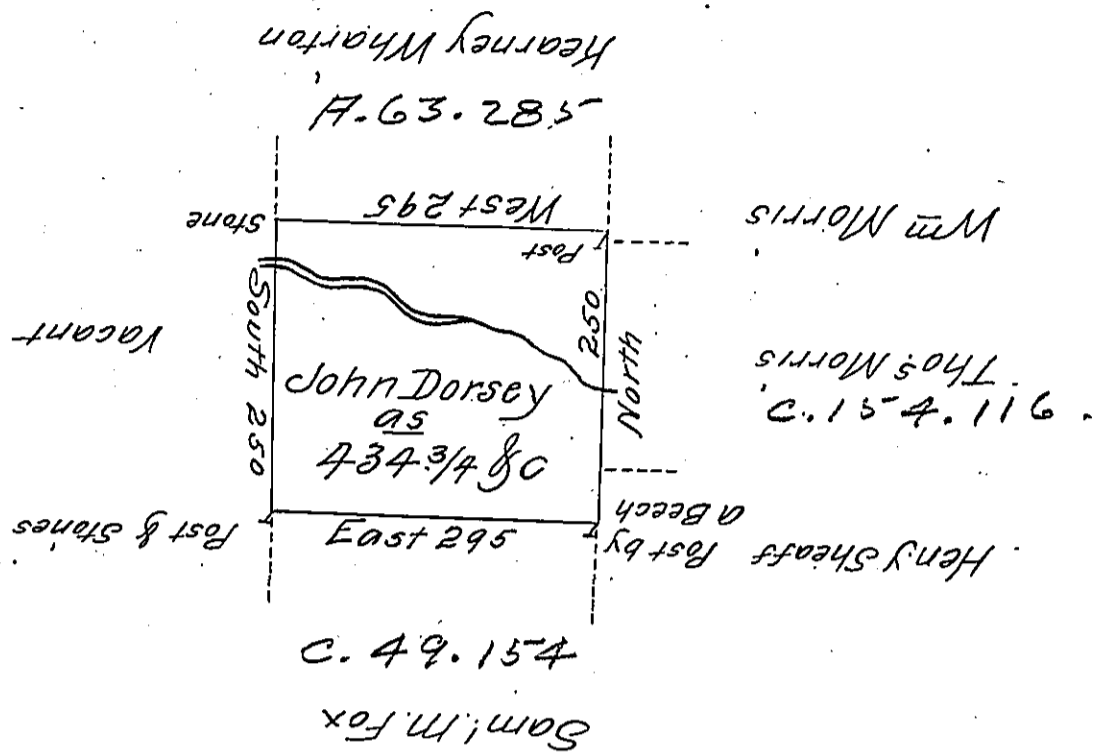 Kearney Wharton
A. 63. 285
West 295
Stone
Post
Wm Morris
South 250
Vacant
250
North
Thos Morris
C. 154. 116.
John Dorsey
as
434 3/4 & C
Post & Stones
East 295
Post by
a Beech
Heny Sheaff
C. 49. 154
Saml. M. Fox